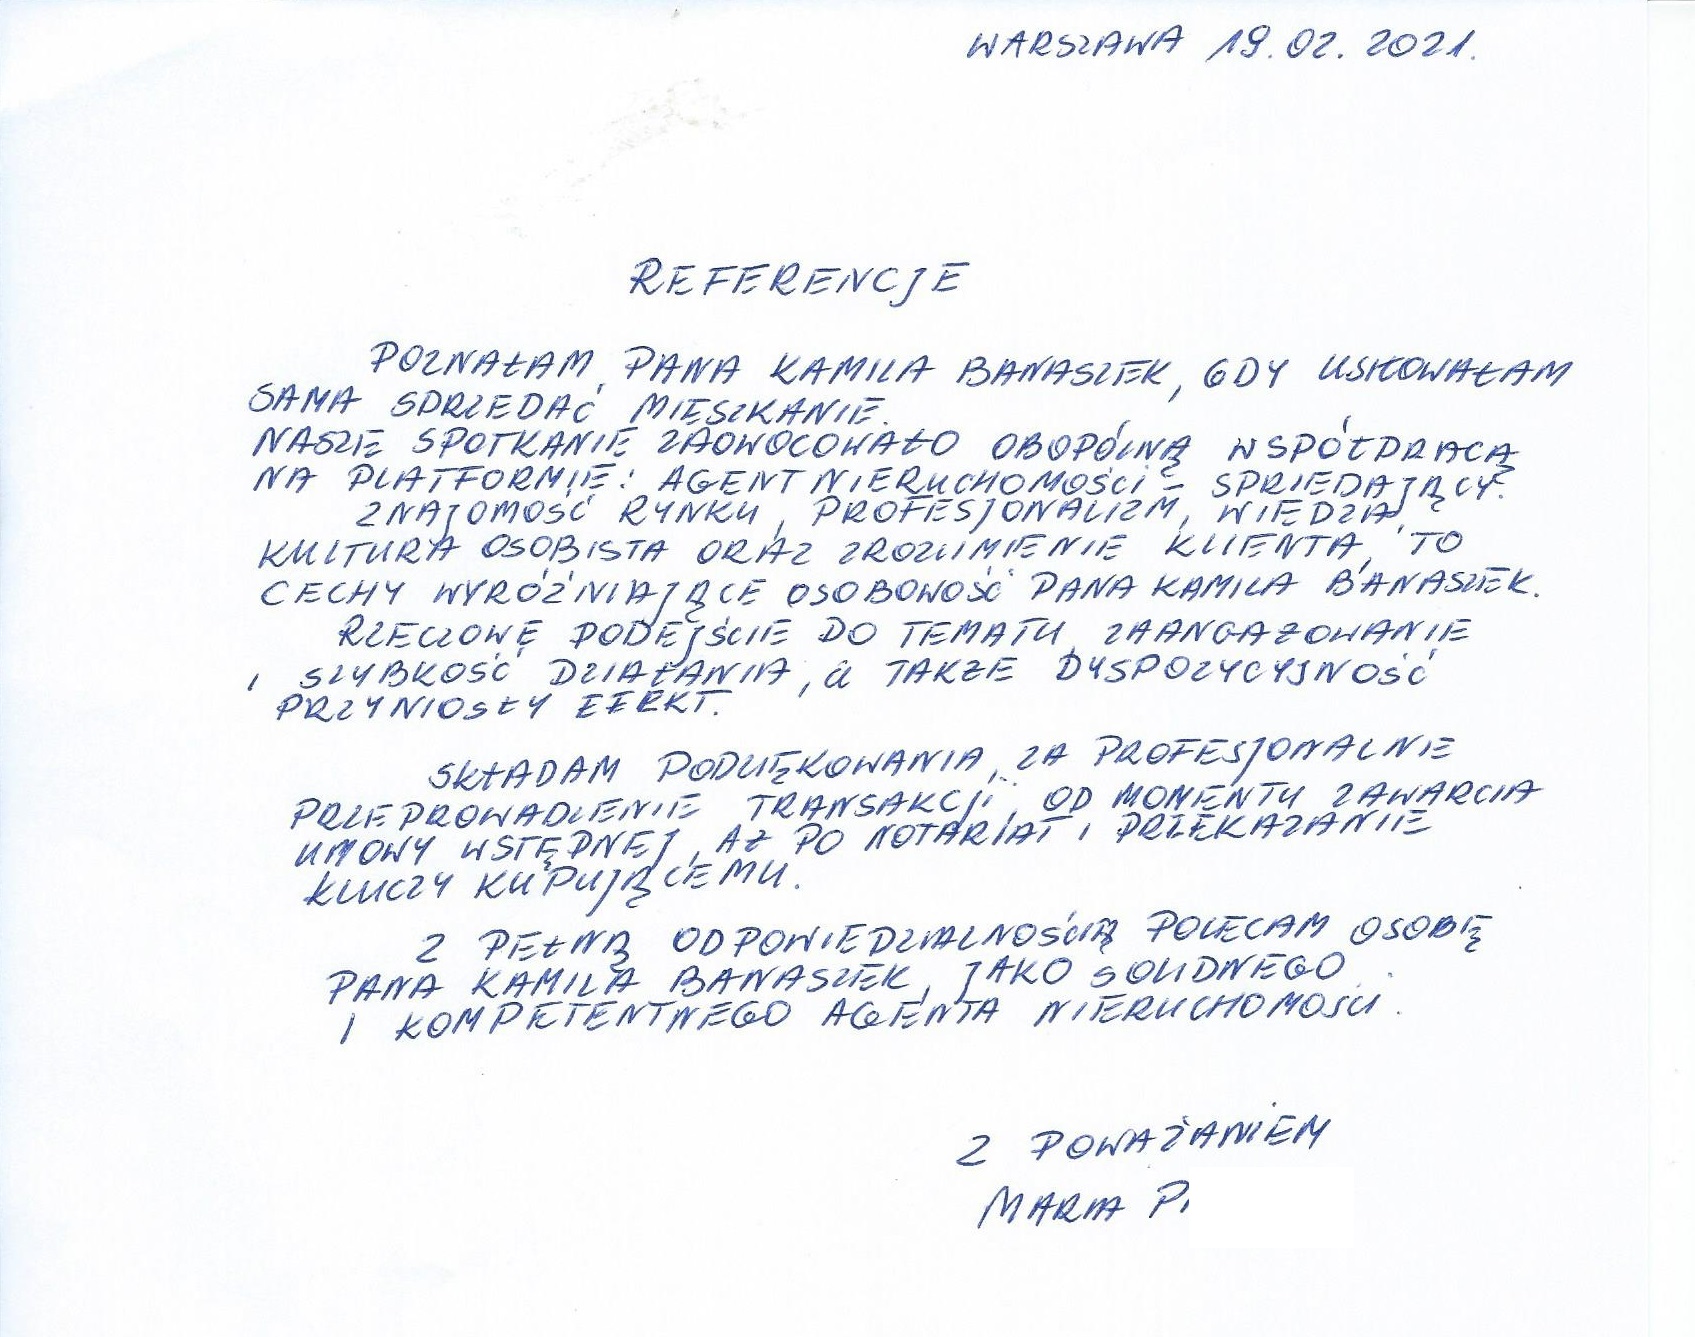 WARSZAWA 19.02.2021.
REFERENCJE
POZNAŁAM PANA KAMILA BANASZEK, GDY USIŁOWAŁAM
SAMA SPRZEDAĆ MIESZKANIE.
NASZE SPOTKANIE ZAOWOCOWAŁO OBOPÓLNĄ WSPÓŁPRACĄ
NA PLATFORMIE: AGENT NIERUCHOMOŚCI - SPRZEDAJĄCY.
ZNAJOMOŚĆ RYNKU, PROFESJONALIZM, WIEDZA,
KULTURA OSOBISTA ORAZ ZROZUMIENIE KLIENTA, TO
CECHY WYRÓŻNIAJĄCE OSOBOWOŚĆ PANA KAMILA BANASZEK.
RZECZOWE PODEJŚCIE DO TEMATU, ZAANGAŻOWANIE
I SZYBKOŚĆ DZIAŁANIA, a TAKŻE DYSPOZYCYJNOŚĆ
PRZYNIOSŁY EFEKT.
SKŁADAM PODZIĘKOWANIA, ZA PROFESJONALNIE
PRZEPROWADZENIE TRANSAKCJI, OD MOMENTU ZAWARCIA
UMOWY WSTĘPNEJ, AŻ PO NOTARIAT I PRZEKAZANIE
KLUCZY KUPUJĄCEMU.
Z PEŁNĄ ODPOWIEDZIALNOŚCIĄ POLECAM OSOBĘ
PANA KAMILA BANASZEK, JAKO SOLIDNEGO
I KOMPETENTNEGO AGENTA NIERUCHOMOŚCI.
Z POWAŻANIEM
MARIA P.